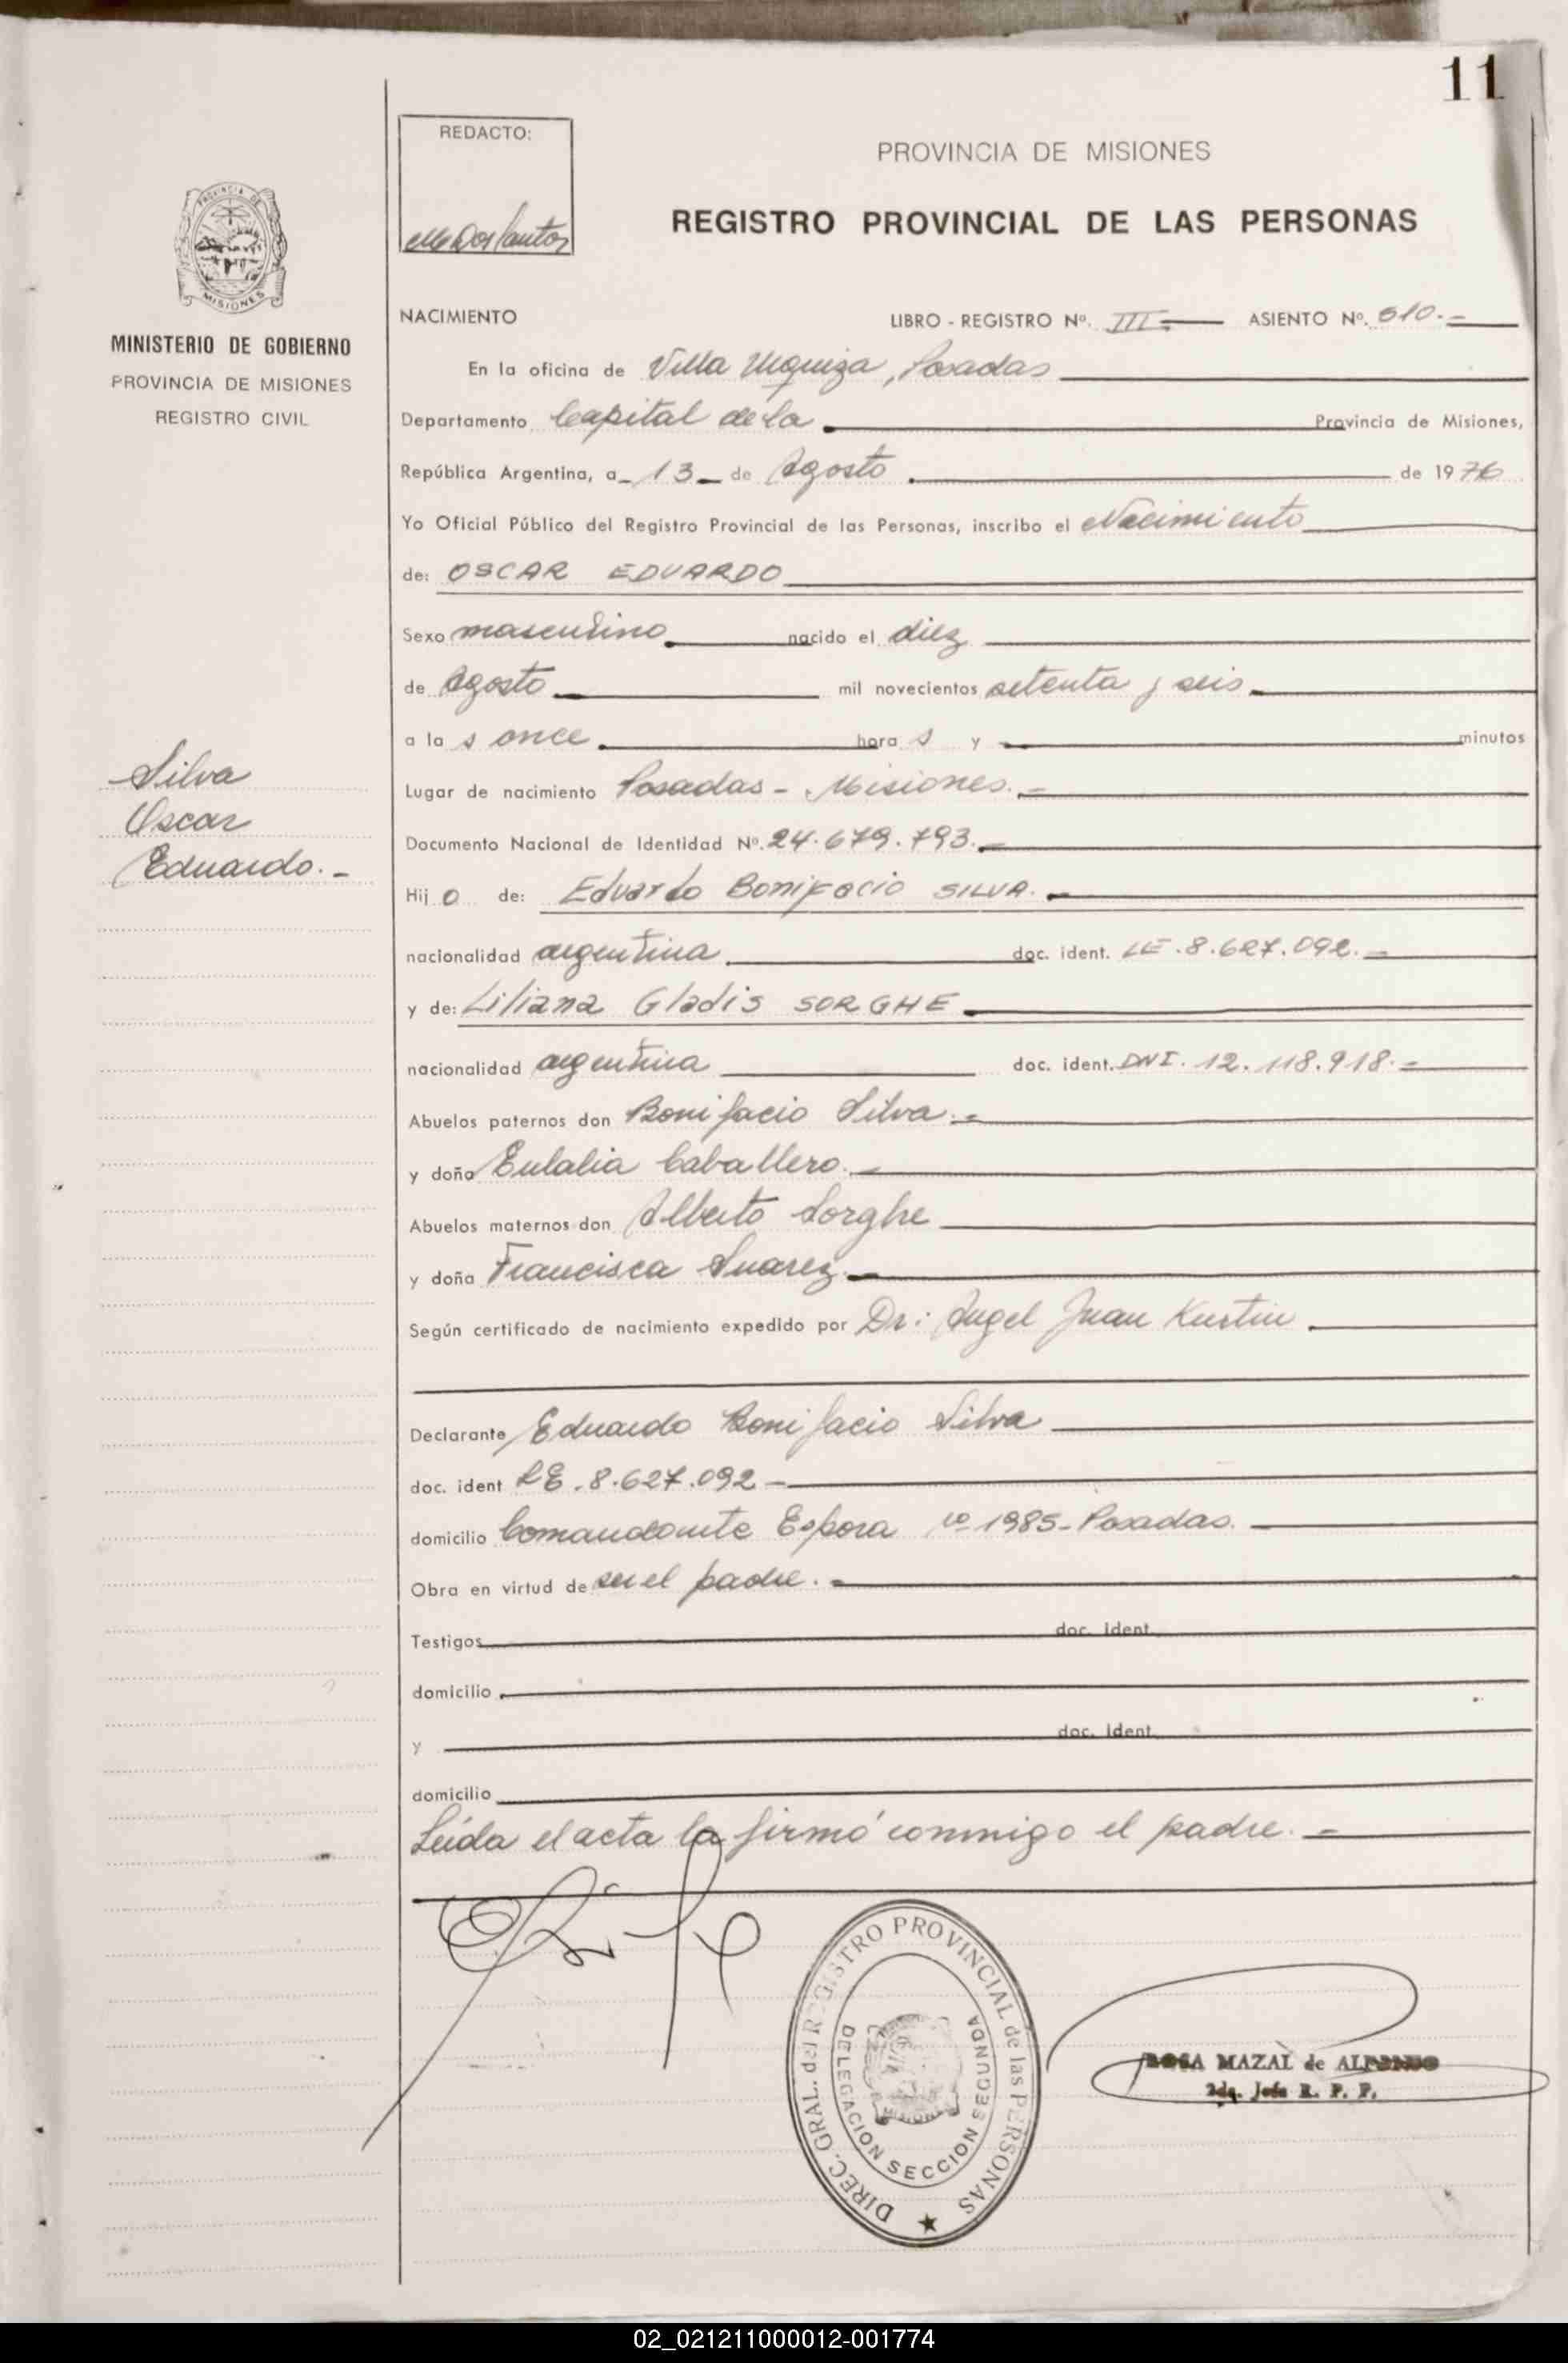 11
REDACTO:
PROVINCIA DE MISIONES
REGISTRO PROVINCIAL DE LAS PERSONAS
PROVINCIA DE
MISIONES
MINISTERIO DE GOBIERNO
PROVINCIA DE MISIONES
REGISTRO CIVIL
Silva
Oscar
Eduardo.-
NACIMIENTO LIBRO - REGISTRO Nº. III ASIENTO Nº. 510.-
En la oficina de Villa Urquiza, Posadas
Departamento Capital de la Provincia de Misiones,
República Argentina, a 13 de Agosto de 1976
Yo Oficial Público del Registro Provincial de las Personas, inscribo el Nacimiento
de: OSCAR EDUARDO
Sexo masculino nacido el diez
de Agosto mil novecientos setenta y seis
a la s once hora s y minutos
Lugar de nacimiento Posadas - Misiones.-
Documento Nacional de Identidad Nº. 24.679.793.-
Hij o de: Eduardo Bonifacio SILVA.-
nacionalidad argentina doc. ident. LE.8.627.092.-
y de: Liliana Gladis SORGHE
nacionalidad argentina doc. ident. DNI. 12.118.918.-
Abuelos paternos don Bonifacio Silva.-
y doña Eulalia Caballero.-
Abuelos maternos don Alberto Sorghe
y doña Francisca Suarez.-
Según certificado de nacimiento expedido por Dr: Angel Juan Kustin.
Declarante Eduardo Bonifacio Silva
doc. ident LE.8.627.092-
domicilio Comandante Espora nº 1985-Posadas.
Obra en virtud de ser el padre.-
Testigos doc. ident.
domicilio
y doc. ident.
domicilio
Leída el acta la firmó conmigo el padre.-
DIREC. GRAL. del REGISTRO PROVINCIAL de las PERSONAS
DELEGACION SECCION SEGUNDA
MISIONES
ROSA MAZAL de
Jefe R. P. P.
02_021211000012-001774